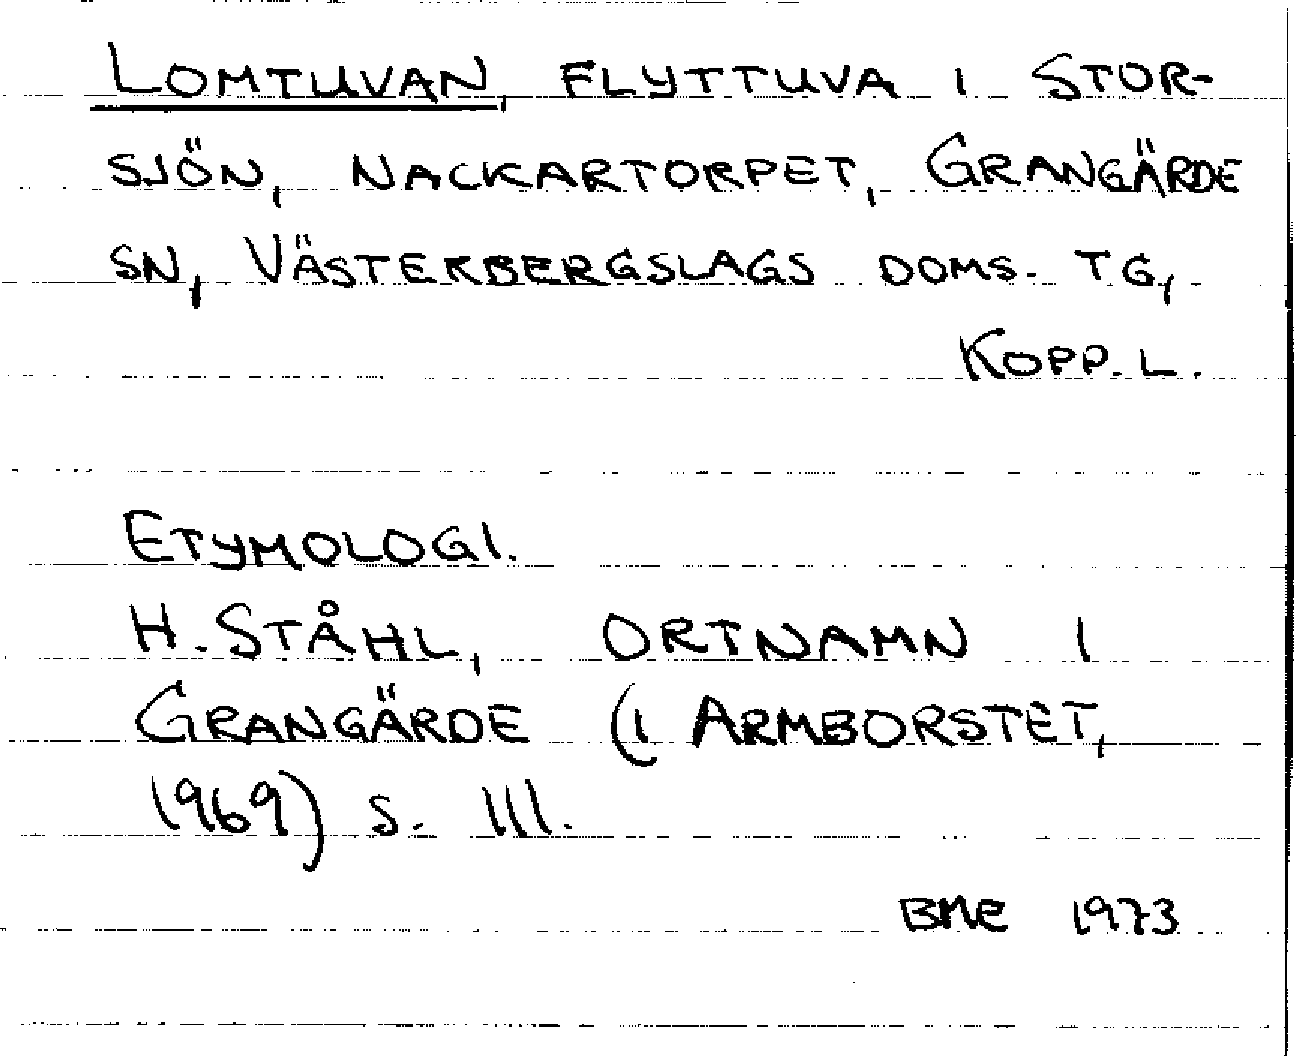 LOMTUVAN, FLYTTUVA I STOR-
SJÖN, NACKARTORPET, GRANGÄRDE
SN, VÄSTERBERGSLAGS DOMS. TG,
KOPP. L.
ETYMOLOGI.
H. STÅHL, ORTNAMN I
GRANGÄRDE (I ARMBORSTET,
1969) S. 111.
BME 1973